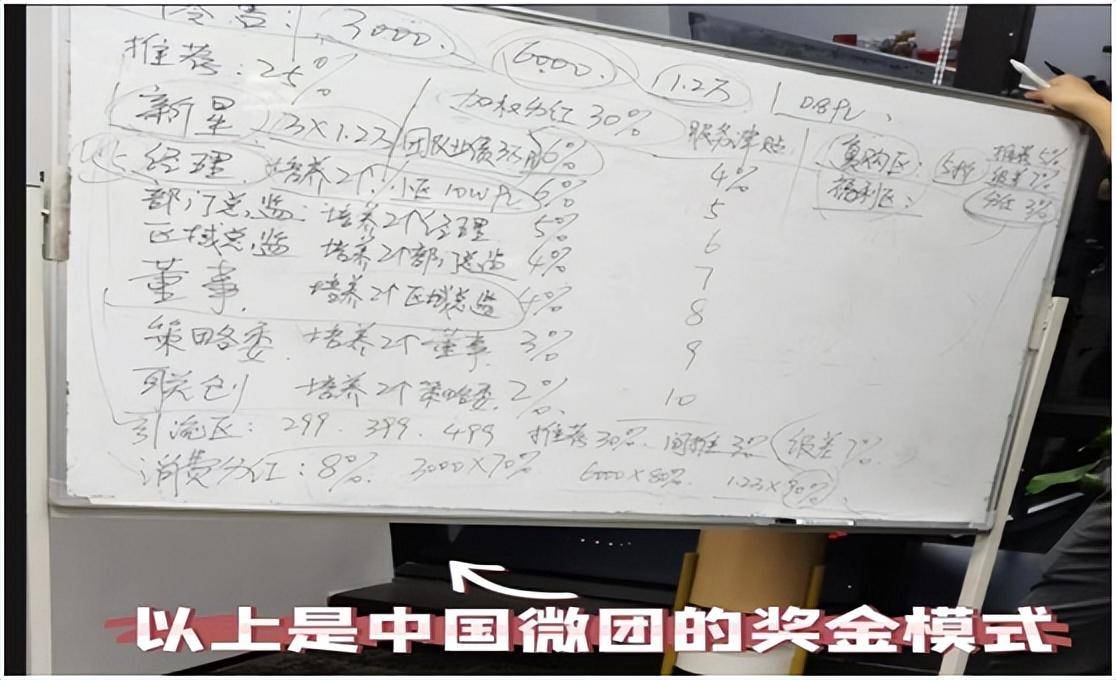 会员: 3000. 6000. 1.2万 | 0.8PV、
推荐: 25%
新星 3×1.2万 团队业绩3万 6% 加权分红30% 服务津贴
经理 培养2个 小区10WPV 6% 4%
部门总监: 培养2个经理 5% 5
区域总监 培养2个部门总监 4% 6
董事 培养2个区域总监 4% 7
8
策略委 培养2个董事 3% 9
联创 培养2个策略委 2% 10
复购区: 5折 推荐5% 级差7% 分红3%
福利区:
引流区: 299. 399. 499 推荐30%. 间推3% 级差7%
消费分红: 8% 3000×70% 6000×80% 1.2万×90%
以上是中国微团的奖金模式